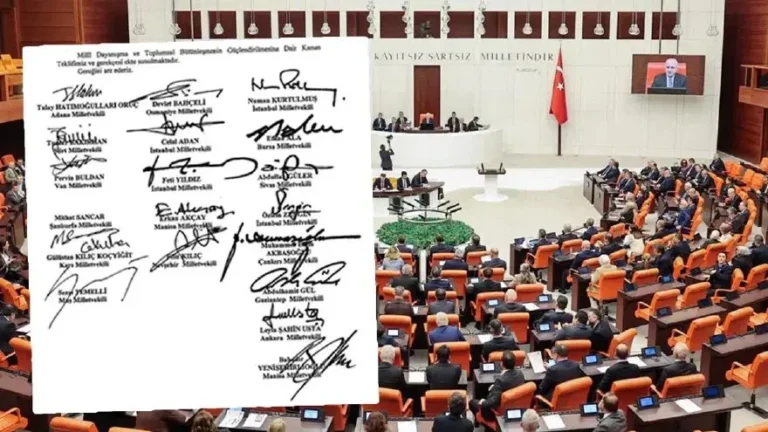 Milli Dayanışma ve Toplumsal Bütünleşmenin Güçlendirilmesine Dair Kanun
Teklifimiz ve gerekçesi ekte sunulmaktadır.
Gereğini arz ederiz.
Tulay HATIMOĞULLARI ORUÇ
Adana Milletvekili
Devlet BAHÇELİ
Osmaniye Milletvekili
Numan KURTULMUŞ
İstanbul Milletvekili
Milletvekili
Celal ADAN
İstanbul Milletvekili
ALA
Bursa Milletvekili
Pervin BULDAN
Van Milletvekili
Feti YILDIZ
İstanbul Milletvekili
GÜLER
Sivas Milletvekili
Mithat SANCAR
Şanlıurfa Milletvekili
Erkan AKÇAY
Manisa Milletvekili
İstanbul Milletvekili
Gülüstan KILIÇ KOÇYİĞİT
Kars Milletvekili
KILIÇ
Milletvekili
AKBAŞOĞLU
Çankırı Milletvekili
Sezai TEMELLİ
Muş Milletvekili
Abdulhamit GÜL
Gaziantep Milletvekili
Leyla ŞAHİN USTA
Ankara Milletvekili
YENİŞEHİRLİOĞLU
Manisa Milletvekili
KAYITSIZ ŞARTSIZ MİLLETİNDİR